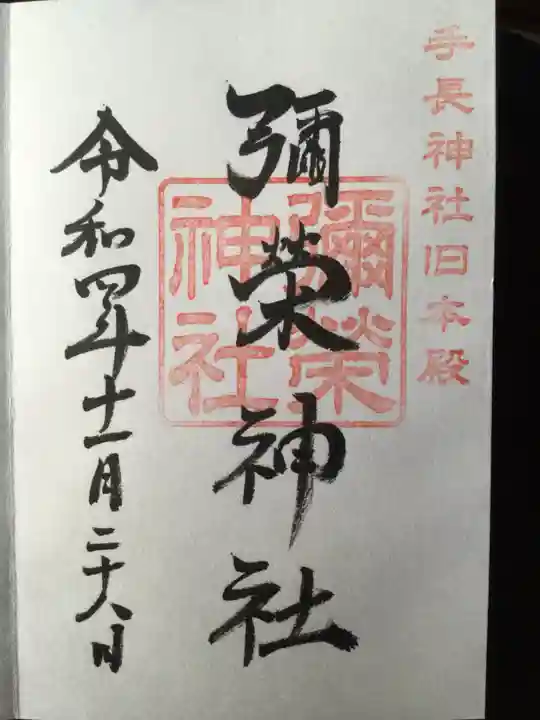 手長神社旧本殿
彌榮神社
彌榮
神社
令和四年十一月二十八日